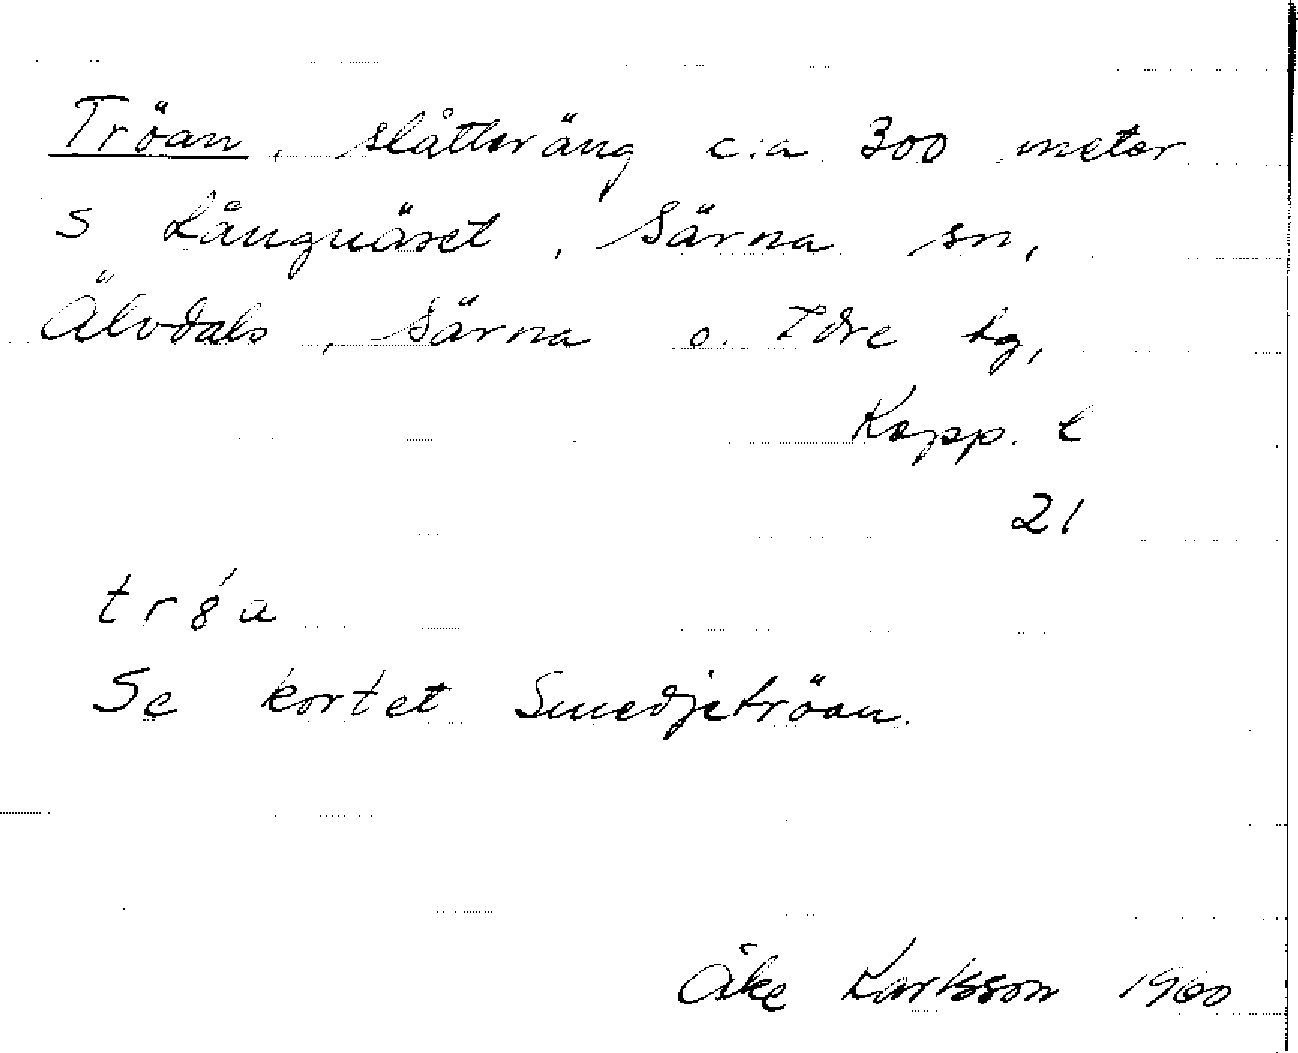 Tröan, slåtteräng c:a 300 meter
S Långnäset, Särna sn,
Älvdals, Särna o. Idre tg,
Kopp. l
21
trȣ́a
Se kortet Smedjetröan.
Åke Karlsson 1960